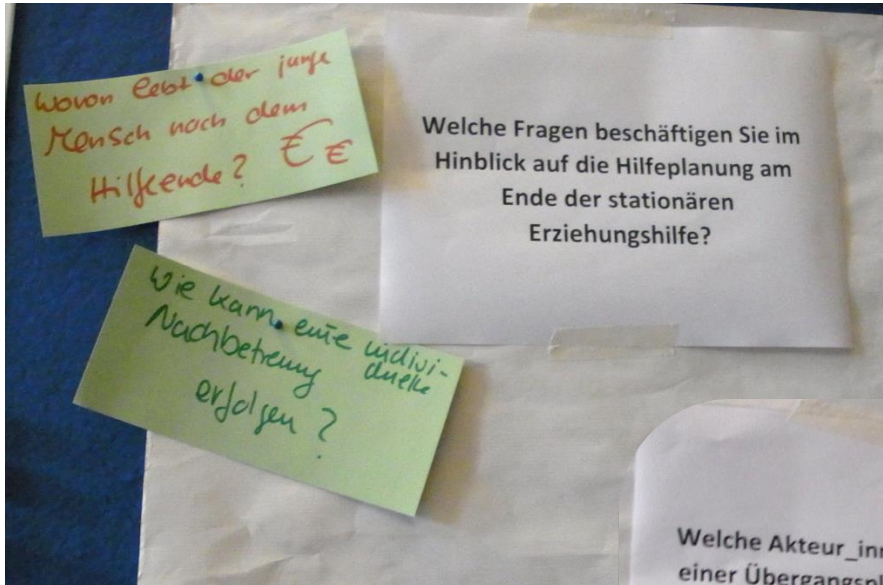 Wovon lebt der junge
Mensch nach dem
Hilfeende? € €
Welche Fragen beschäftigen Sie im
Hinblick auf die Hilfeplanung am
Ende der stationären
Erziehungshilfe?
Wie kann eine indivi-
duelle
Nachbetreuung
erfolgen?
Welche Akteur_inn
einer Übergangs